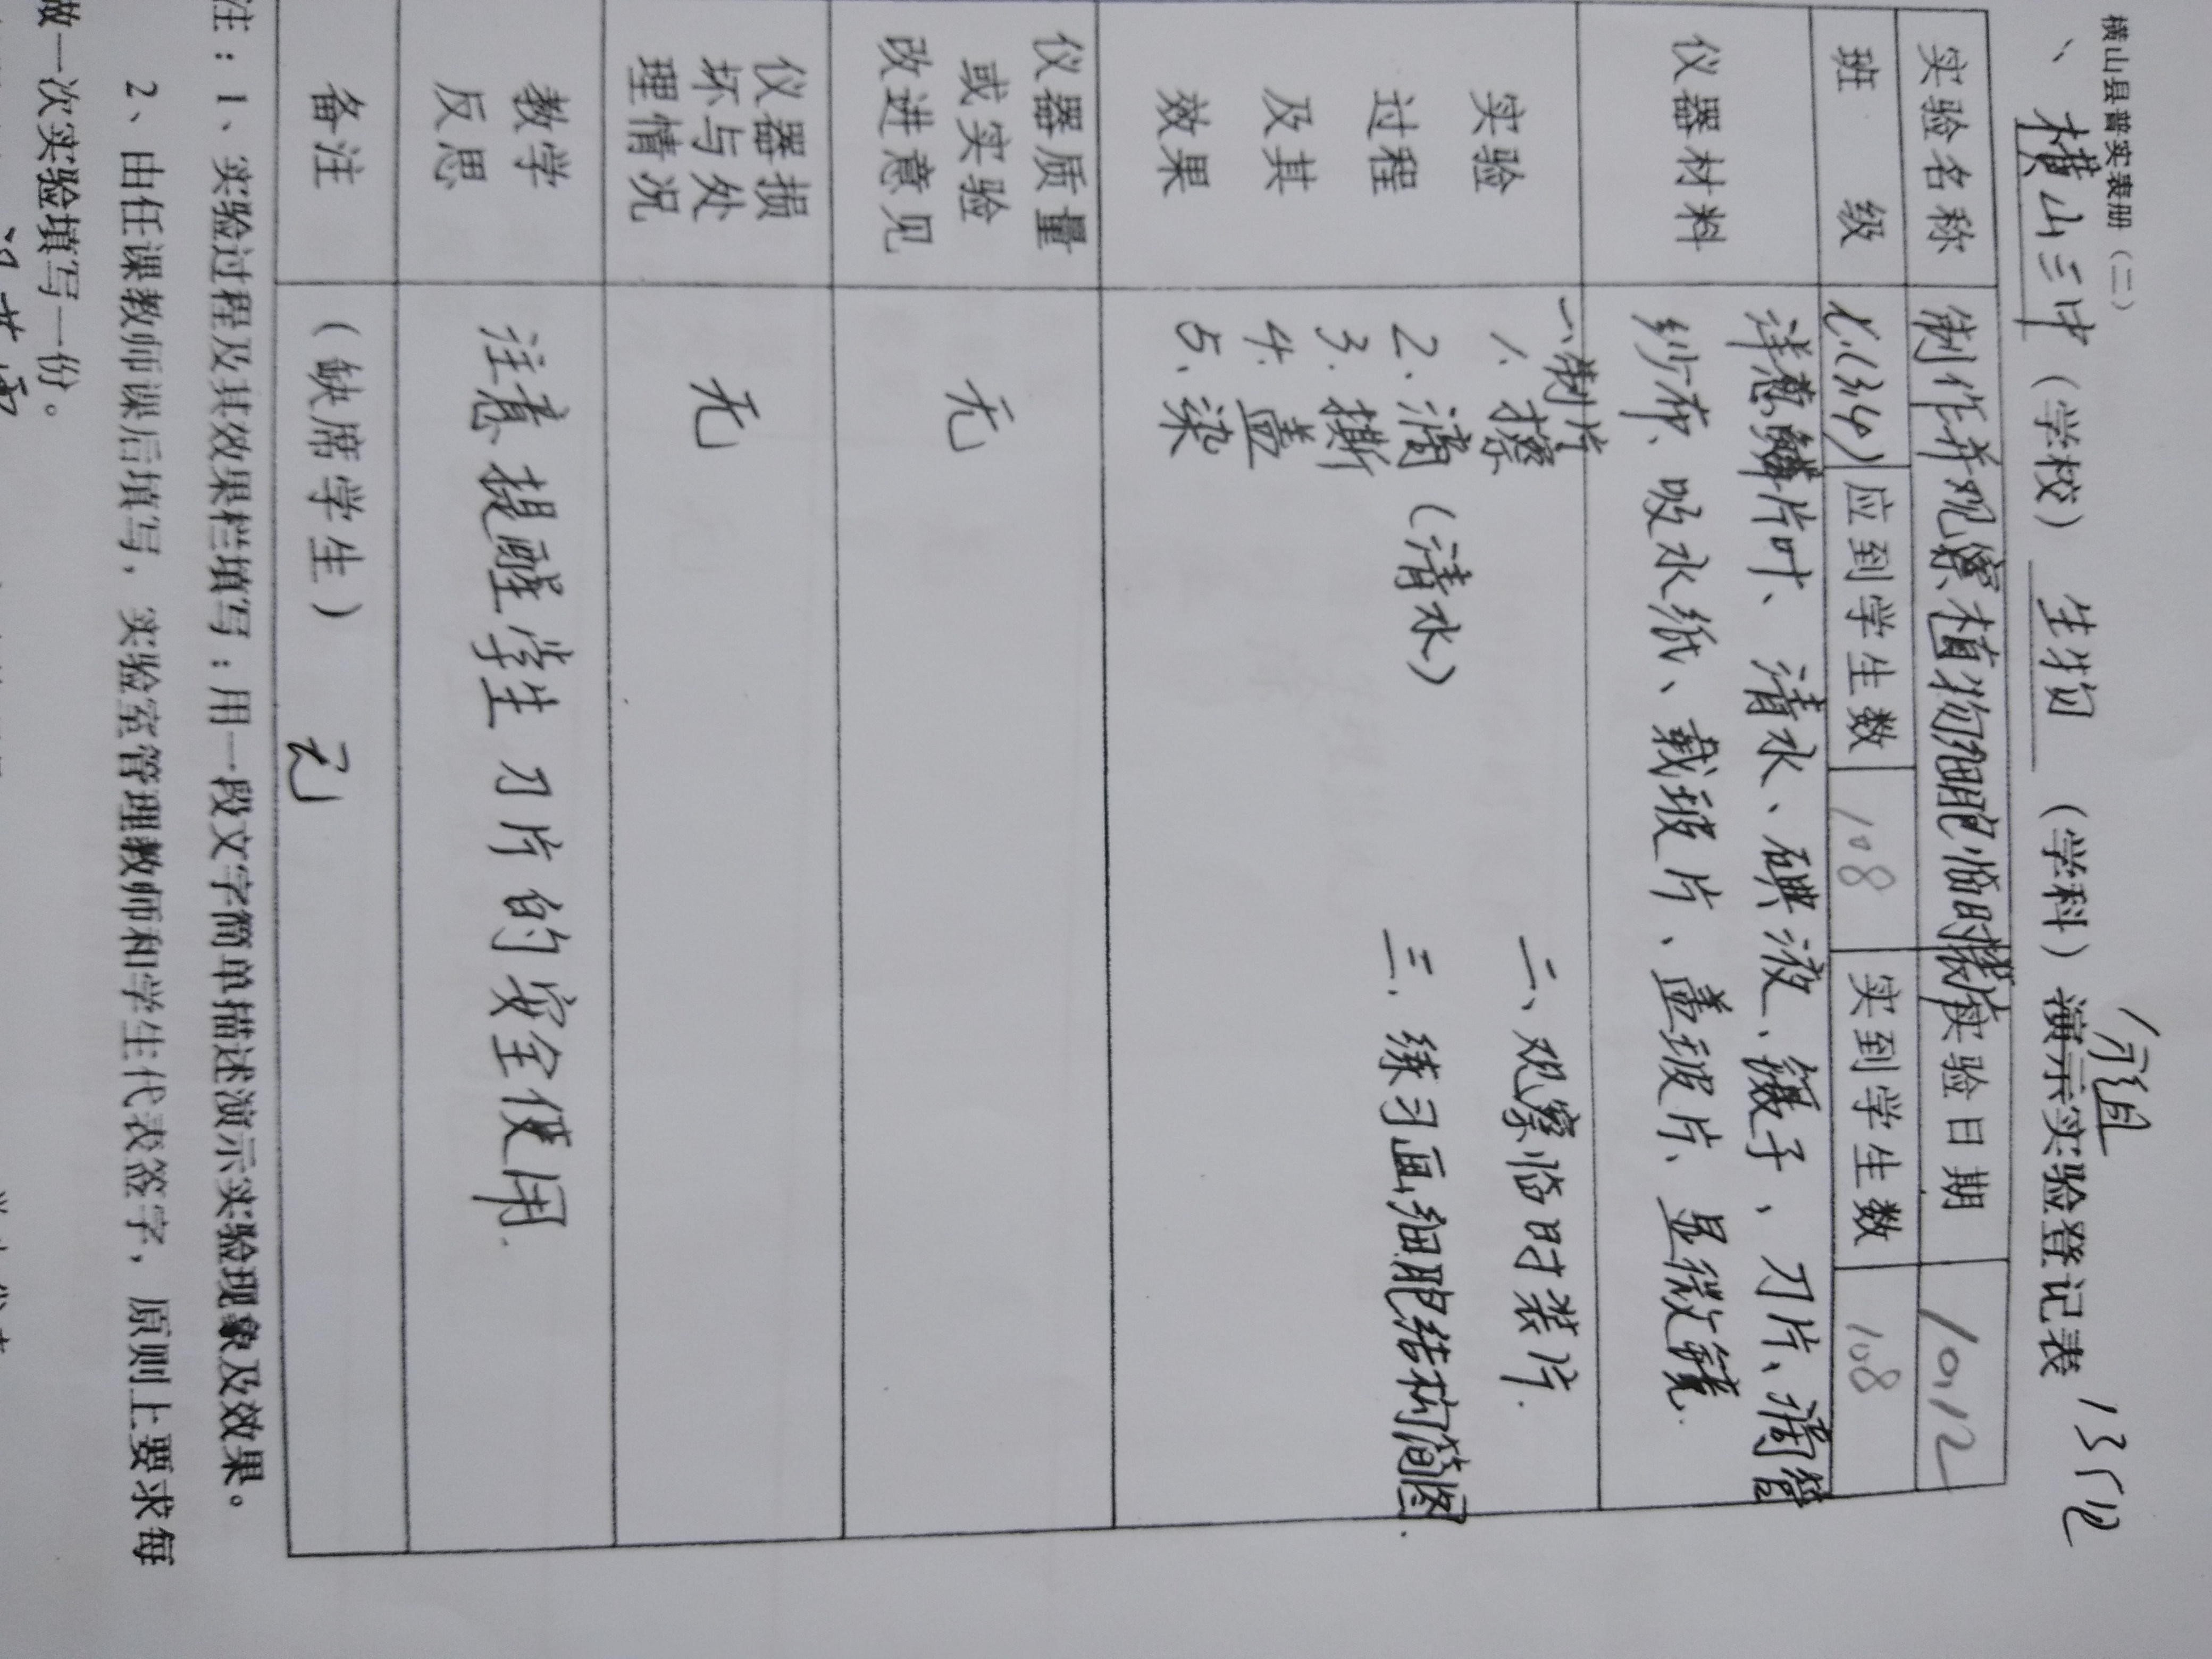 横山县普实表册（二）
分组
、横山三中（学校）生物（学科）演示实验登记表
实验名称 制作并观察植物细胞临时装片 实验日期 10.12
班 级 七(3.4) 应到学生数 108 实到学生数 108
仪器材料 洋葱鳞片叶、清水、碘液、镊子、刀片、滴管
纱布、吸水纸、载玻片、盖玻片、显微镜.
实验
过程
及其
效果
一、制片
1、擦
2、滴（清水）
3、撕
4、盖
5、染
二、观察临时装片.
三、练习画细胞结构简图.
仪器质量
或实验
改进意见
无
仪器损
坏与处
理情况
无
教学
反思
注意提醒学生刀片的安全使用.
备注 （缺席学生） 无
注：1、实验过程及其效果栏填写：用一段文字简单描述演示实验现象及效果。
2、由任课教师课后填写，实验室管理教师和学生代表签字，原则上要求每
做一次实验填写一份。